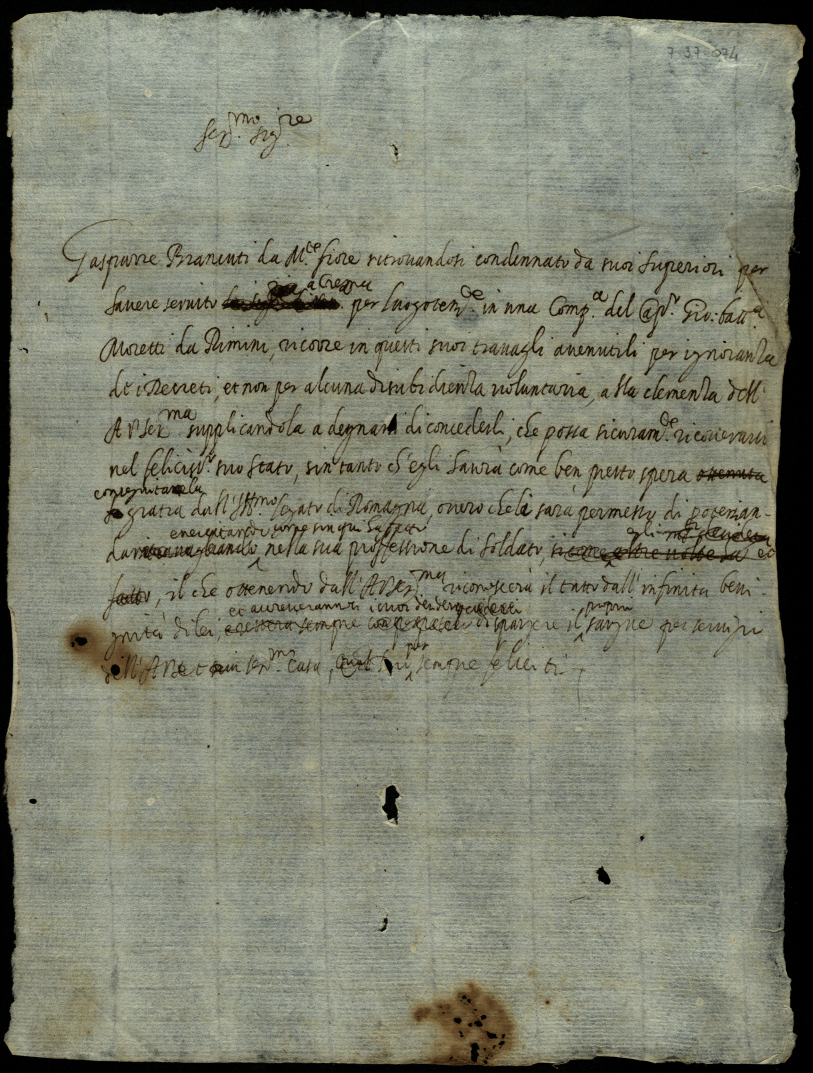 7 37 074
Ser.mo Sig.re
Gasparre Brancuti da M.te fiore ritrovandosi condennato da suoi Superiori per
havere servito a Crema per luogoten.te in una Comp.a del Cap.n Gio: batt.a
Moretti da Rimini, ricorre in questi suoi travagli avenutili per ignoranza
de i Decreti, et non per alcuna disubidienza voluntaria, alla clemenza dell'
A.V. Ser.ma supplicandola a degnarsi di concederli, che possa sicuram.te ricoverarsi
nel feliciss.o suo stato, sin tanto ch'egli havrà come ben presto spera ottenuta
conseguita la
gratia dall'Ill.mo legato di Romagna, overo che li sarà permesso di
esercitando come sin qui ha fatto egli
nella sua proffessione di soldato,
fatto, il che ottenendo dall'A.V. Ser.ma riconoscerà il tutto dall'infinita beni-
et accrescerannosi i suoi
gnità di lei, sempre di spargere il proprio sangue per servigi
dell'A.V. et sua Ser.ma Casa, per sempre feliciti.